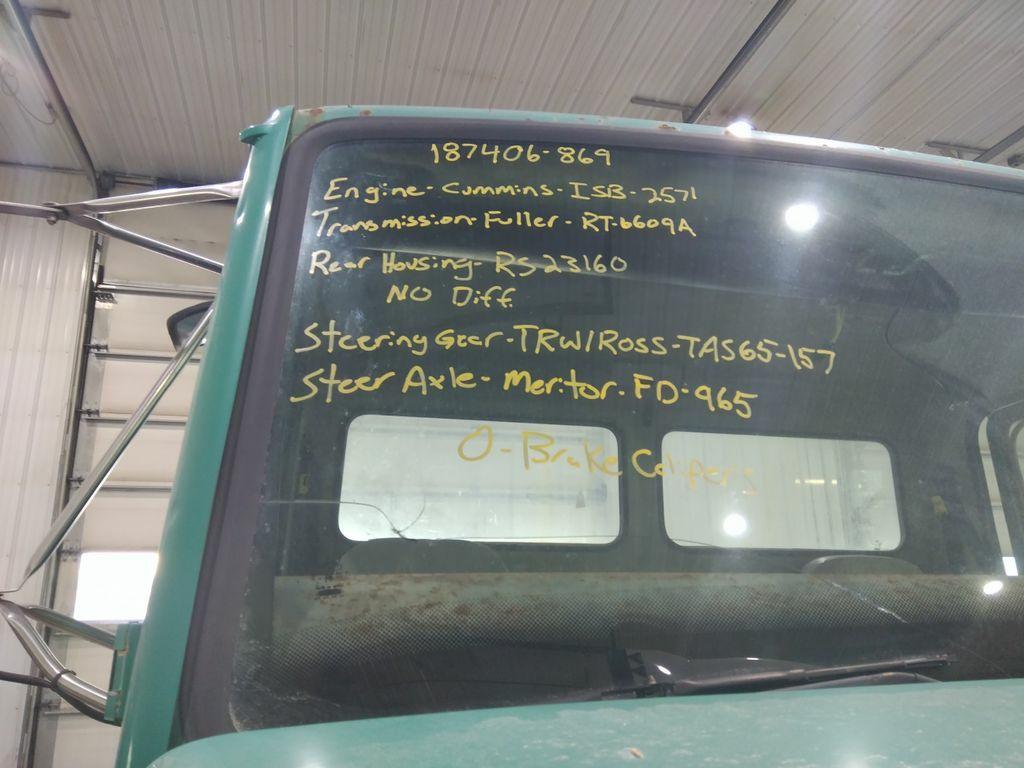 187406-869
Engine-Cummins-ISB-2571
Transmission-Fuller-RT-6609A
Rear Housing-RS23160
NO Diff
Steering Gear-TRW/Ross-TAS65-157
Steer Axle-Meritor-FD-965
0-Brake Calipers